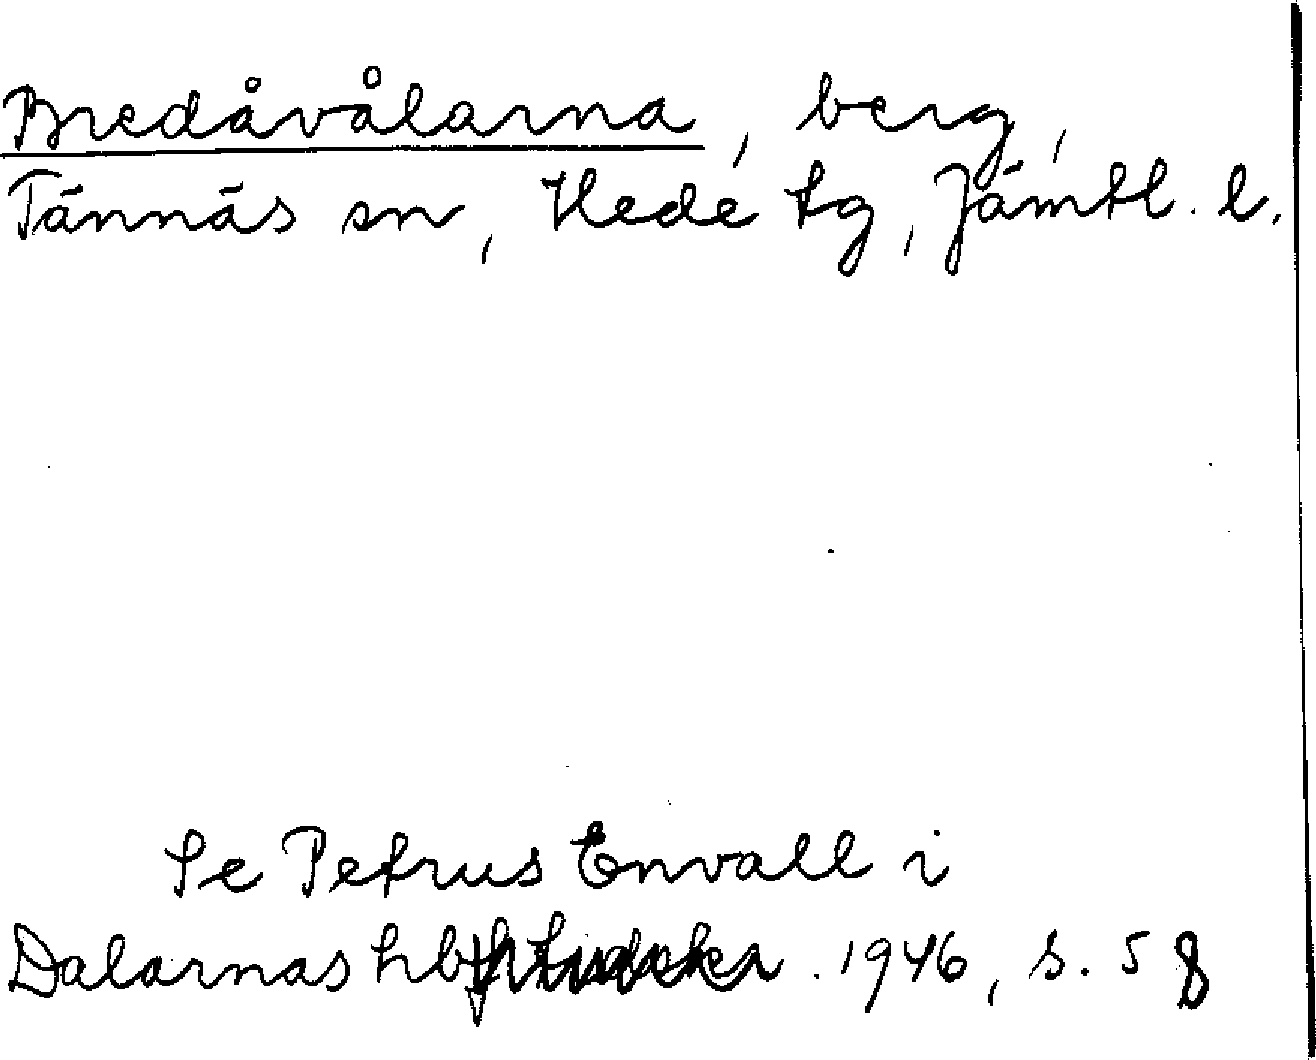 Bredåvålarna, berg,
Tännäs sn, Hede tg, Jämtl. l.
Se Petrus Envall i
Dalarnas hb. 1946, s. 58